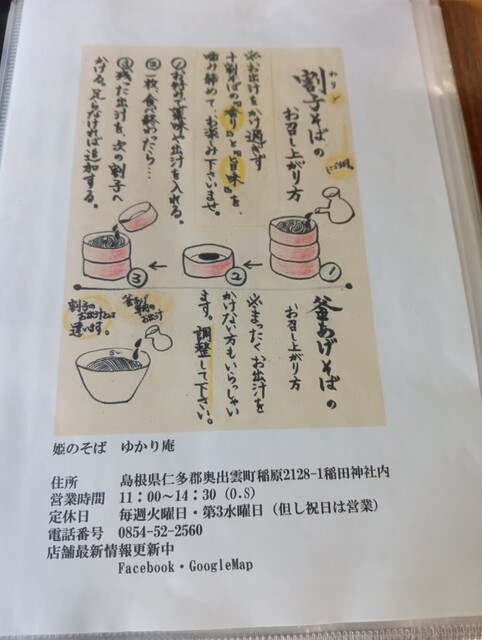 わりご
割子そばの
お召し上がり方
※お出汁をかけ過ぎず
十割そばの『香り』と『旨味』を
噛み締めて、お楽しみ下さいませ。
①お好みで薬味や出汁を入れる。
②一枚、食べ終わったら…
③残った出汁を、次の割子へ
かける。足らなければ追加する。
①
②
③
釜あげそばの
お召し上がり方
※まったくお出汁を
かけない方もいらっしゃい
ます。調整して下さい。
釜あげ専用の
お出汁
割子の
お出汁とは
違います。
姫のそば ゆかり庵
住所 島根県仁多郡奥出雲町稲原2128-1稲田神社内
営業時間 11:00～14:30 (O.S)
定休日 毎週火曜日・第3水曜日（但し祝日は営業）
電話番号 0854-52-2560
店舗最新情報更新中
Facebook・GoogleMap